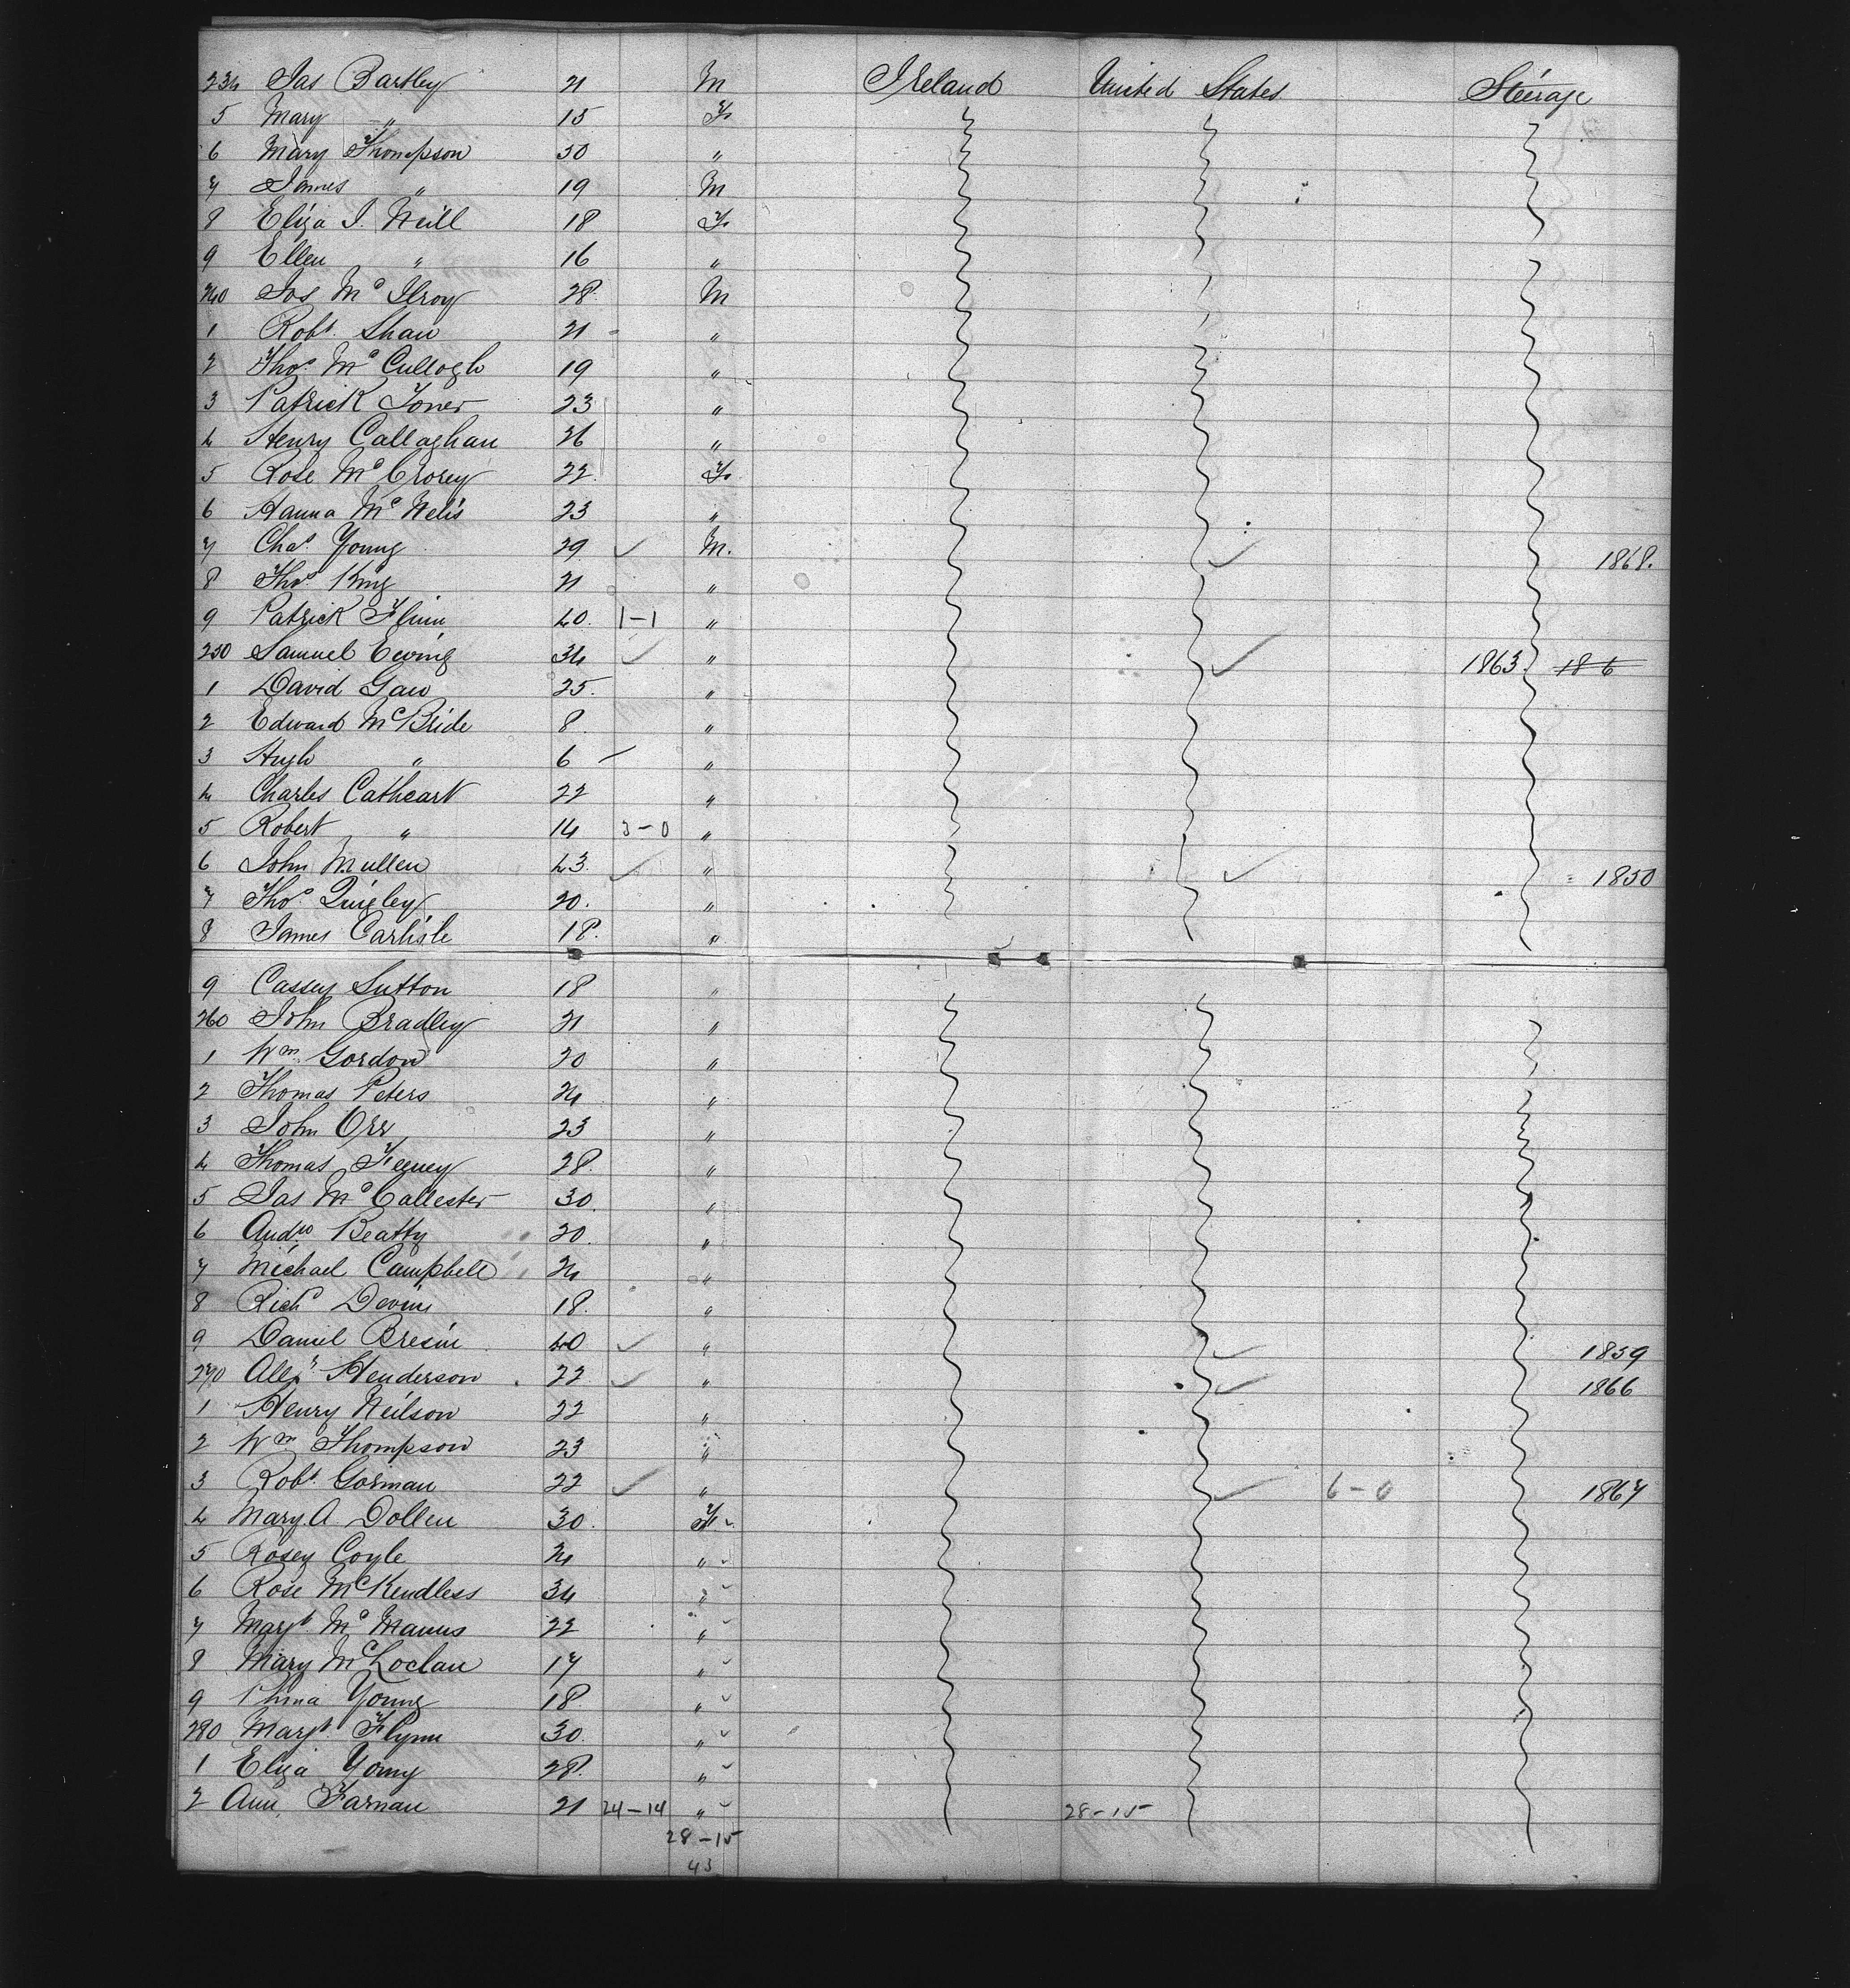 234 Jas Bartley 21 M Ireland United States Steerage
5 Mary " 15 F
6 Mary Thompson 30 "
7 James " 19 M
8 Eliza J. Neill 18 F
9 Ellen " 16 "
240 Jas Mc Ilroy 28 M
1 Robt. Shaw 21 "
2 Thos. Mc Cullogh 19 "
3 Patrick Toner 23 "
4 Henry Callaghan 26 "
5 Rose Mc Crorey 22 F
6 Hanna Mc Nelis 23 "
7 Chas. Young 29 ✓ M. ✓ 1868.
8 Thos. King 21 "
9 Patrick Flinn 40. 1-1 "
250 Samuel Ewing 34 ✓ " ✓ 1863. 18 6
1 David Gaw 25. "
2 Edward McBride 8. "
3 Hugh " 6 "
4 Charles Cathcart 22 "
5 Robert " 14 3-0 "
6 John Mullen 43. ✓ " ✓ 1850
7 Thos. Quigley 20. "
8 James Carlisle 18. "
9 Cassey Sutton 18 "
260 John Bradley 21 "
1 Wm Gordon 20 "
2 Thomas Peters 24 "
3 John Orr 23 "
4 Thomas Feeney 28. "
5 Jas Mc Callester 30. "
6 Andw Beatty 20. "
7 Michael Campbell 24 "
8 Richd Devin 18. "
9 Daniel Bresin 40 ✓ " ✓ 1859
270 Allxr Henderson 22 ✓ " ✓ 1866
1 Henry Neilson 22 "
2 Wm Thompson 23 "
3 Robt. Gorman 22 ✓ " ✓ 6-0 1867
4 Mary A Dollen 30. F
5 Rosey Coyle 24 "
6 Rose McKendless 34 "
7 Margt. Mc Manus 22 "
8 Mary McLoclan 17 "
9 Young 18. "
280 Margt. Flynn 30. "
1 Eliza Young 28. "
2 Ann Farnan 21 24-14 " 28-15
28-15
43